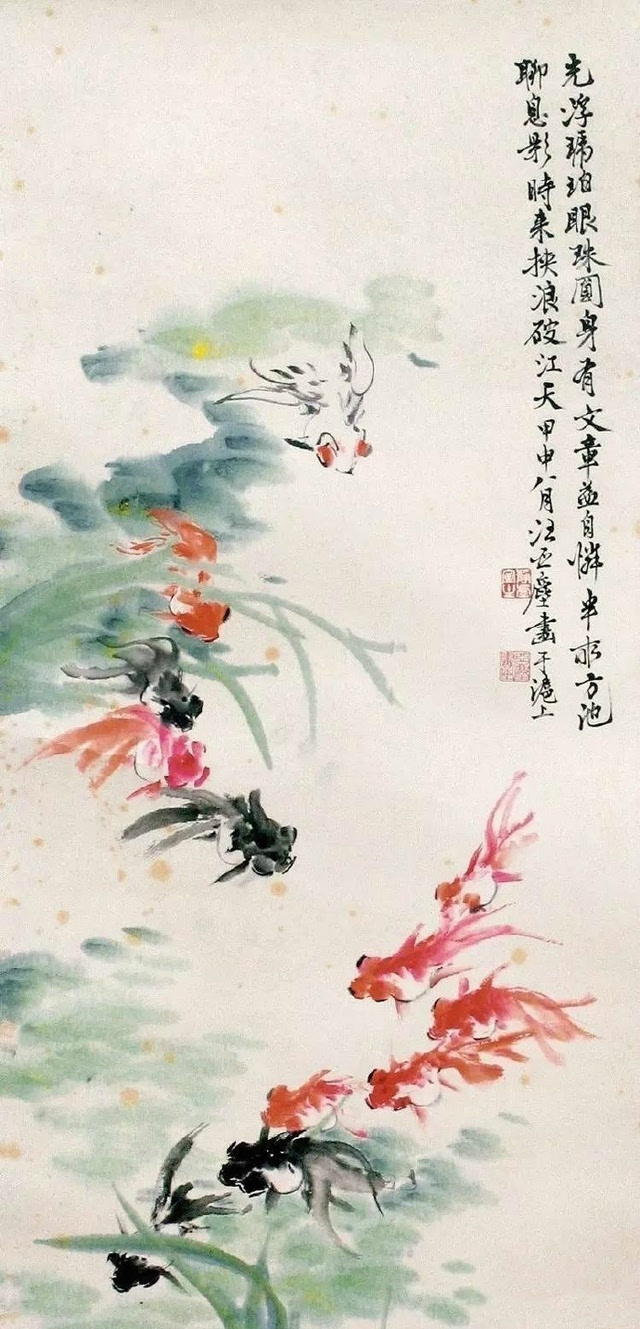 光浮琥珀眼珠圆身有文章益自憐半畝方池
聊息影時来挾浪破江天甲申八月汪亞塵畫于滬上